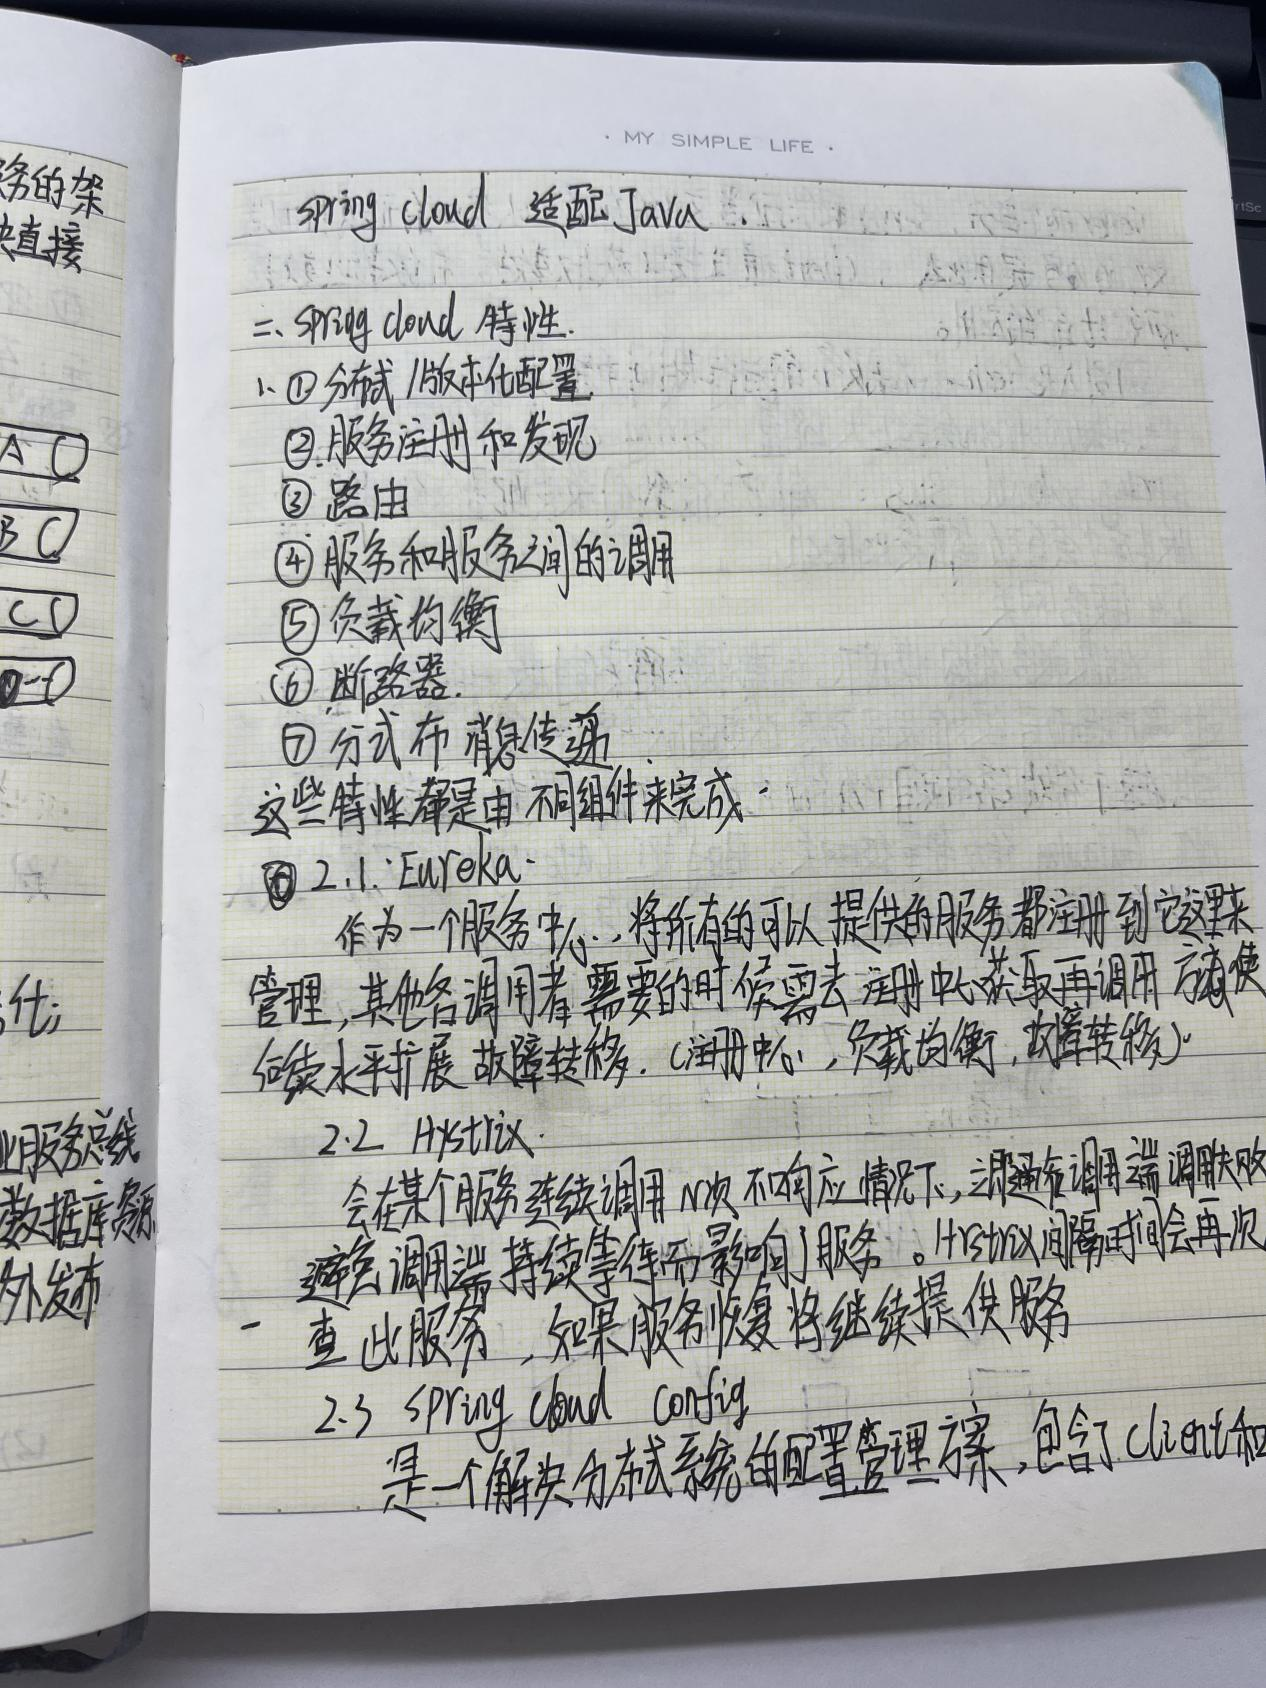 务的架
直接
A C
B C
C C
化;
业服务总线
数据库资源
外发布
· MY SIMPLE LIFE ·
spring cloud 适配Java.
二、spring cloud 特性.
1、①分布式/版本化配置
②.服务注册和发现
③ 路由
④ 服务和服务之间的调用
⑤ 负载均衡
⑥ 断路器.
⑦ 分式布 消息传递.
这些特性都是由不同组件来完成.
2.1. Eureka.
作为一个服务中心,将所有的可以提供的服务都注册到它这里来
管理,其他各调用者需要的时候需去注册中心获取再调用 方便使
续水平扩展 故障转移.(注册中心,负载均衡,故障转移).
2.2 Hystrix.
会在某个服务连续调用N次不响应情况下,立即通知调用端调用失败
避免调用端持续等待而影响了服务。Hrstrix间隔时间会再次
查此服务,如果服务恢复将继续提供服务
2.3 spring cloud config
是一个解决分布式系统的配置管理方案,包含了client和